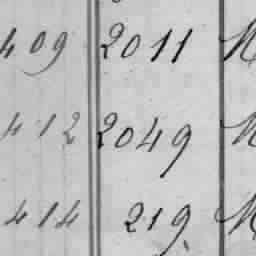 409 2011 M
412 2049 M
414 219 M